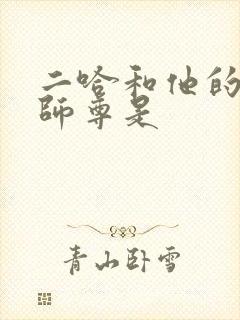 二哈和他的
師尊是
青山卧雪